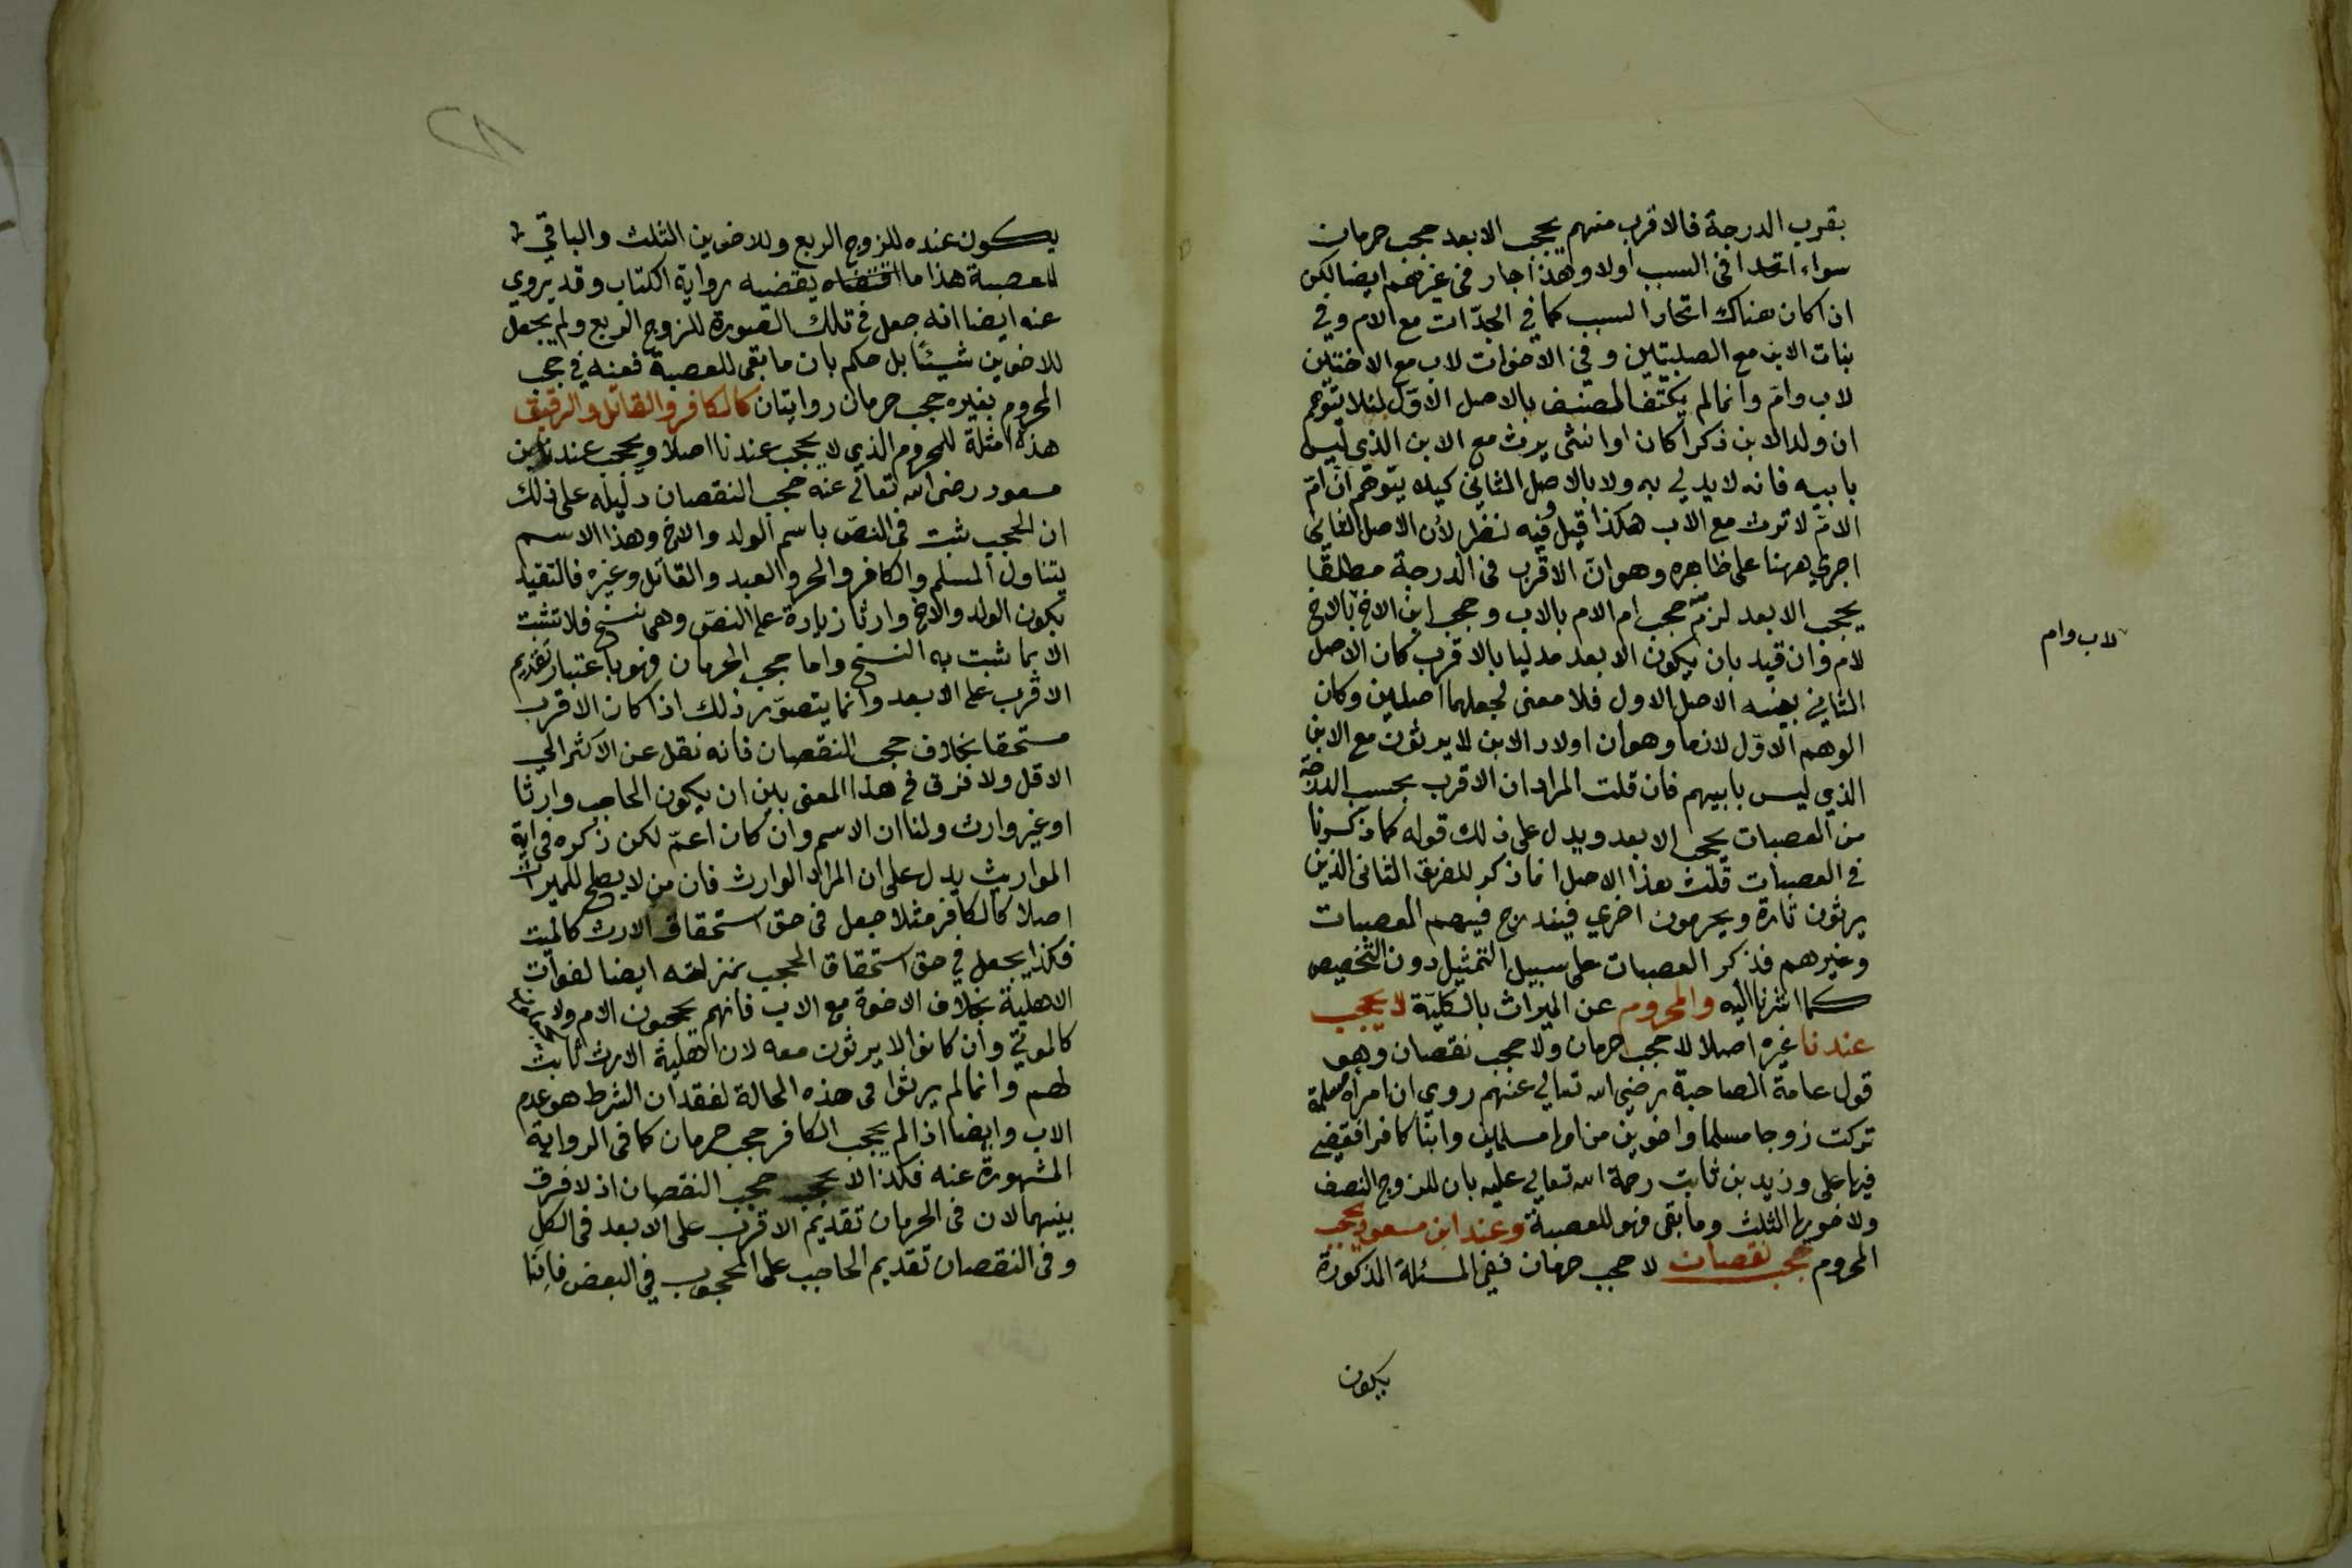 بقرب الدرجة فالاقرب منهم يحجب الابعد حجب حرمان
سواء اتحدا في السبب اولا وهذا جار في غيرهم ايضا لكن
اذا كان هناك اتحاد السبب كما في الجدّات مع الام وفي
بنات الابن مع الصلبيتين وفي الاخوات لاب مع الاختين
لاب وامّ وانما لم يكتف المصنف بالاصل الاوّل لئلا يتوهم
ان ولد الابن ذكرا كان او انثى يرث مع الابن الذي ليس
بابيه فانه لا يدلي به ولا بالاصل الثاني كيلا يتوهّم انّ امّ
الامّ لا ترث مع الاب هكذا قيل وفيه نظر لأن الاصل الثاني
اجري ههنا على ظاهره وهو انّ الاقرب في الدرجة مطلقًا
يحجب الابعد لزم منه حجب ام الام بالاب وحجب ابن الاخ بالاخ
لاب وام
لام وان قيد بان يكون الابعد مدليا بالاقرب كان الاصل
الثاني بعينه الاصل الاول فلا معنى لجعلهما اصلين وكان
الوهم الاوّل لازما وهو ان اولاد الابن لا يرثون مع الابن
الذي ليس بابيهم فان قلت المراد ان الاقرب بحسب الدرجة
من العصبات يحجب الابعد ويدل على ذلك قوله كما ذكرنا
في العصبات قلت هذا الاصل انما ذكر للفريق الثاني الذين
يرثون تارة ويحرمون اخري فيندرج فيهم العصبات
وغيرهم فذكر العصبات على سبيل التمثيل دون التخصيص
كما اشرنا اليه والمحروم عن الميراث بالكليّة لا يحجب
عندنا غيره اصلا لا حجب حرمان ولا حجب نقصان وهو
قول عامة الصاحبة رضي الله تعالي عنهم روي ان امرأة مسلمة
تركت زوجا مسلما واخوين من امها مسلمين وابنا كافرا فقضي
فيها على وزيد بن ثابت رحمة الله تعالي عليه بان للزوج النصف
ولاخويها الثلث وما بقي فهو للعصبة وعند ابن مسعود يحجب
المحروم حجب نقصان لا حجب حرمان ففي المسئلة المذكورة
يكون
٢٨
يكون عنده للزوج الربع وللاخوين الثلث والباقي
للعصبة هذا ما يقضيه رواية الكتاب وقد يروي
عنه ايضا انه جعل في تلك الصورة للزوج الربع ولم يجعل
للاخوين شيئًا بل حكم بان ما بقى للعصبة فعنه في حجب
المحروم بغيره حجب حرمان روايتان كالكافر والقاتل والرقيق
هذه امثلة للمحروم الذي لا يحجب عندنا اصلا ويحجب عند ابن
مسعود رضي الله تعالى عنه حجب النقصان دليله على ذلك
ان الحجب ثبت في النصّ باسم الولد والاخ وهذا الاسم
يتناول المسلم والكافر والحر والعبد والقاتل وغيره فالتقييد
بكون الولد والاخ وارثا زيادة على النصّ وهى نسخ فلا تثبت
الا بما ثبت به النسخ واما حجب الحرمان فهو باعتبار تقديم
الاقرب على الابعد وانما يتصوّر ذلك اذا كان الاقرب
مستحقا بخلاف حجب النقصان فانه نقل عن الاكثر الي
الاقل ولا فرق في هذا المعنى بين ان يكون الحاجب وارثا
او غير وارث ولنا ان الاسم وان كان اعمّ لكن ذكره في اية
المواريث يدل على ان المراد الوارث فان من لا يصلح للميراث
اصلا كالكافر مثلا جعل في حق استحقاق الارث كالميت
فكذا يجعل في حق استحقاق الحجب بمنزلته ايضا لفوات
الاهلية بخلاف الاخوة مع الاب فانهم يحجبون الام ولا يجعلون
كالموتي وان كانوا لا يرثون معه لان اهلية الارث ثابت
لهم وانما لم يرثوا في هذه الحالة لفقدان الشرط هو عدم
الاب وايضا اذا لم يحجب الكافر حجب حرمان كما في الرواية
المشهورة عنه فكذا لا يحجب حجب النقصان اذ لا فرق
بينهما لان في الحرمان تقديم الاقرب على الابعد في الكل
وفى النقصان تقديم الحاجب على المحجوب في البعض فانّا